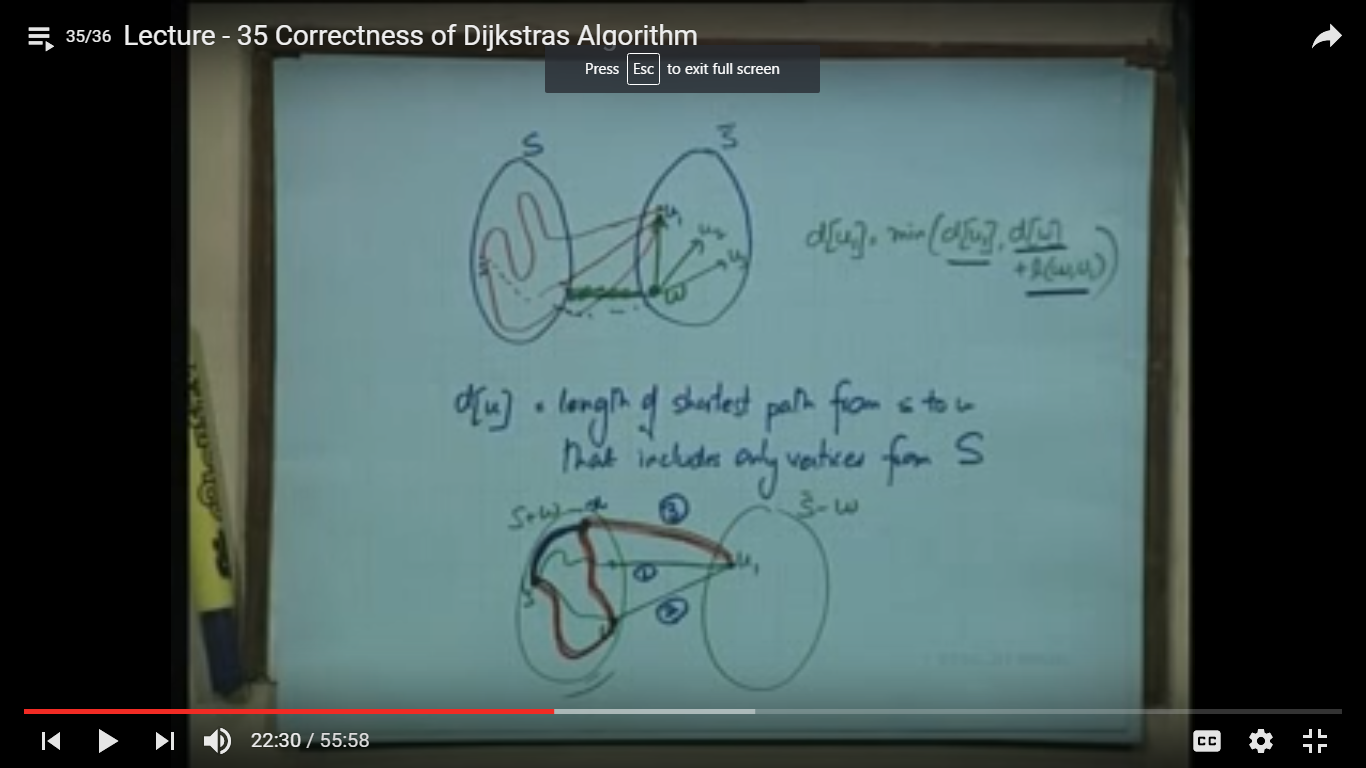 35/36 Lecture - 35 Correctness of Dijkstras Algorithm
Press Esc to exit full screen
S S̄
u₁
u₂
u₃
w
s
d[u₁] = min(d[u₁], d[w]
+ l(w,u₁))
d[u] = length of shortest path from s to u
that includes only vertices from S
S+w x ③ S̄-w
① u₁
s ②
w
22:30 / 55:58
CC